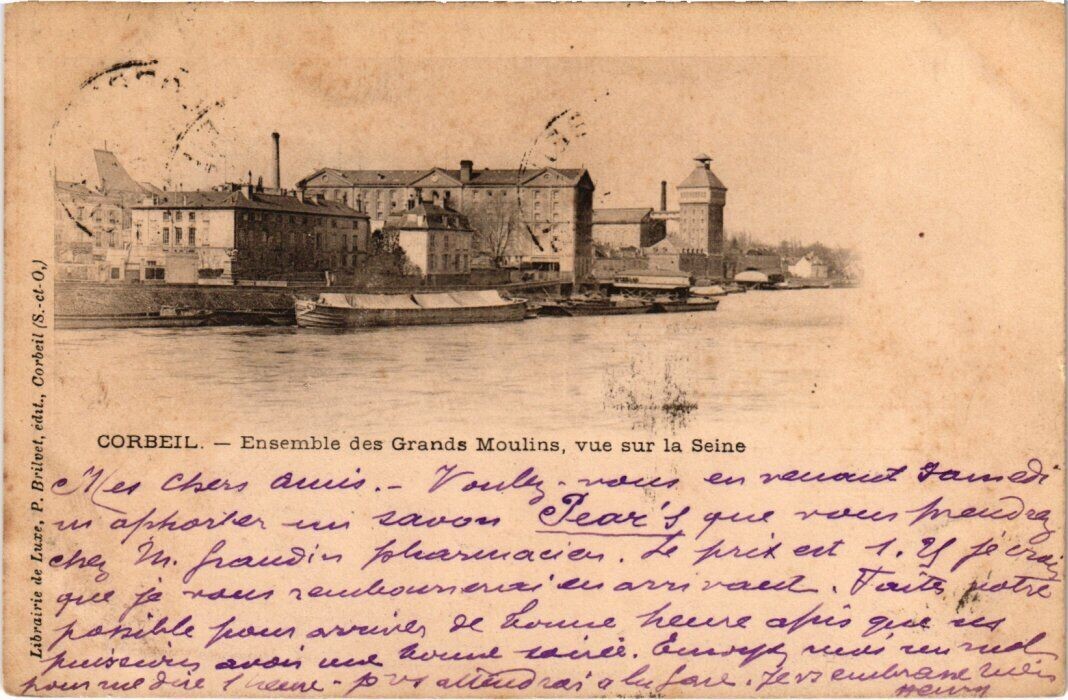 CORBEIL. — Ensemble des Grands Moulins, vue sur la Seine
Librairie de Luxe, P. Brilvet, édit., Corbeil (S.-et-O.)
Mes chers amis. - Voulez-vous en venant samedi
m apporter un savon Pear's que vous prendrez
chez M. Grandin pharmacien. Le prix est 1.25 je crois
que je vous rembourserai en arrivant. Faites votre
possible pour arriver de bonne heure afin que
puissions avoir une bonne soirée. Envoyez moi un mot
pour me dire l heure - je vs attendrai a la gare. Je vs embrasse